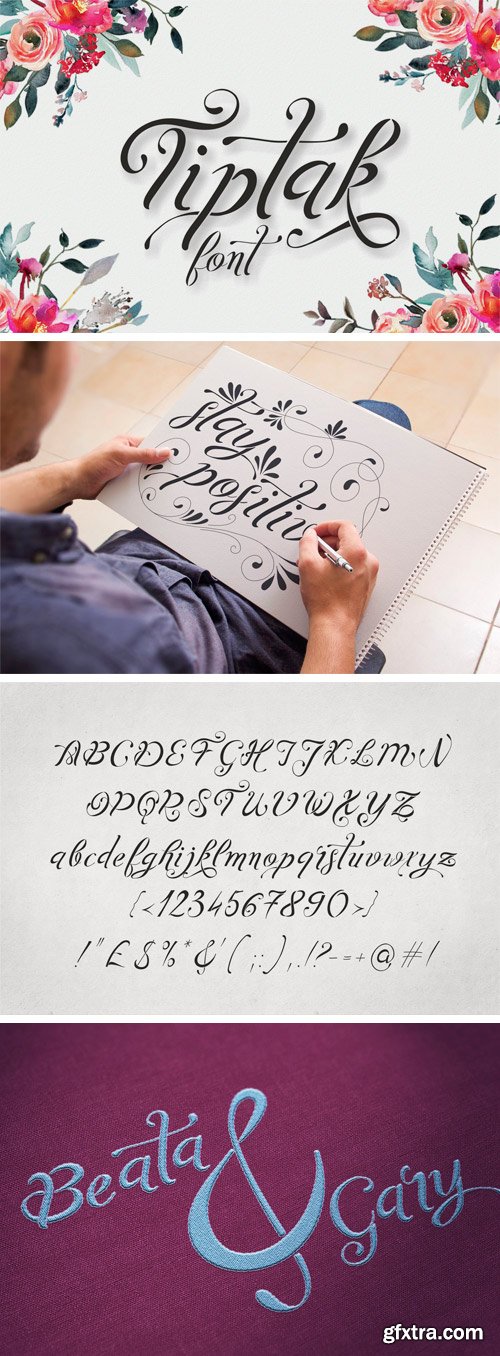 Tiptak
font
stay
positiv
ABCDEFGHIJKLMN
OPQRSTUVWXYZ
abcdefghijklmnopqrstuvwxyz
{<1234567890>}
!"£$%*&'(;:),.!?-=+@#/
Beata & Gary
gfxtra.com